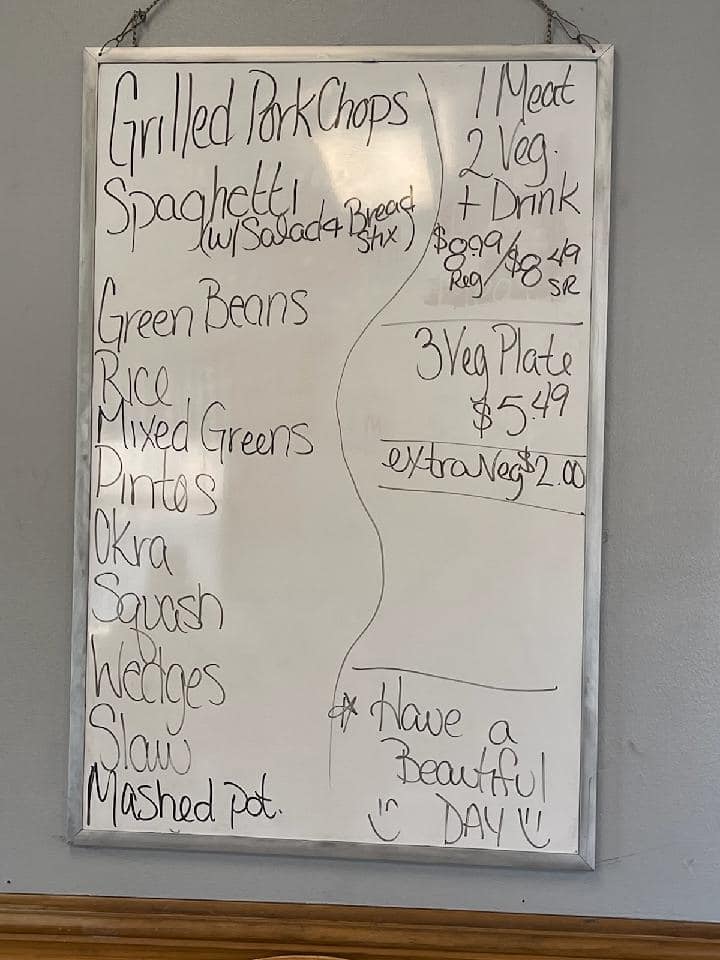 Grilled Pork Chops
Spaghetti
(w/Salad + Bread
Stx)
Green Beans
Rice
Mixed Greens
Pintos
Okra
Squash
Wedges
Slaw
Mashed Pot.
1 Meat
2 Veg.
+ Drink
$8.99/$8.49
Reg SR
3 Veg Plate
$5.49
extra Veg $2.00
Have a
Beautiful
DAY